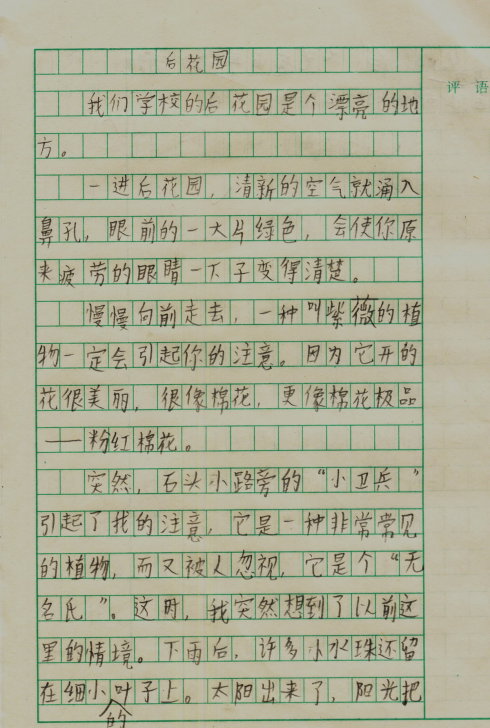 后花园
评语
我们学校的后花园是个漂亮的地
方。
一进后花园，清新的空气就涌入
鼻孔，眼前的一大片绿色，会使你原
来疲劳的眼睛一下子变得清楚。
慢慢向前走去，一种叫紫薇的植
物一定会引起你的注意。因为它开的
花很美丽，很像棉花，更像棉花极品
——粉红棉花。
突然，石头小路旁的“小卫兵”
引起了我的注意，它是一种非常常见
的植物，而又被人忽视，它是个“无
名氏”。这时，我突然想到了以前这
里的情境。下雨后，许多小水珠还留
在细小的叶子上。太阳出来了，阳光把